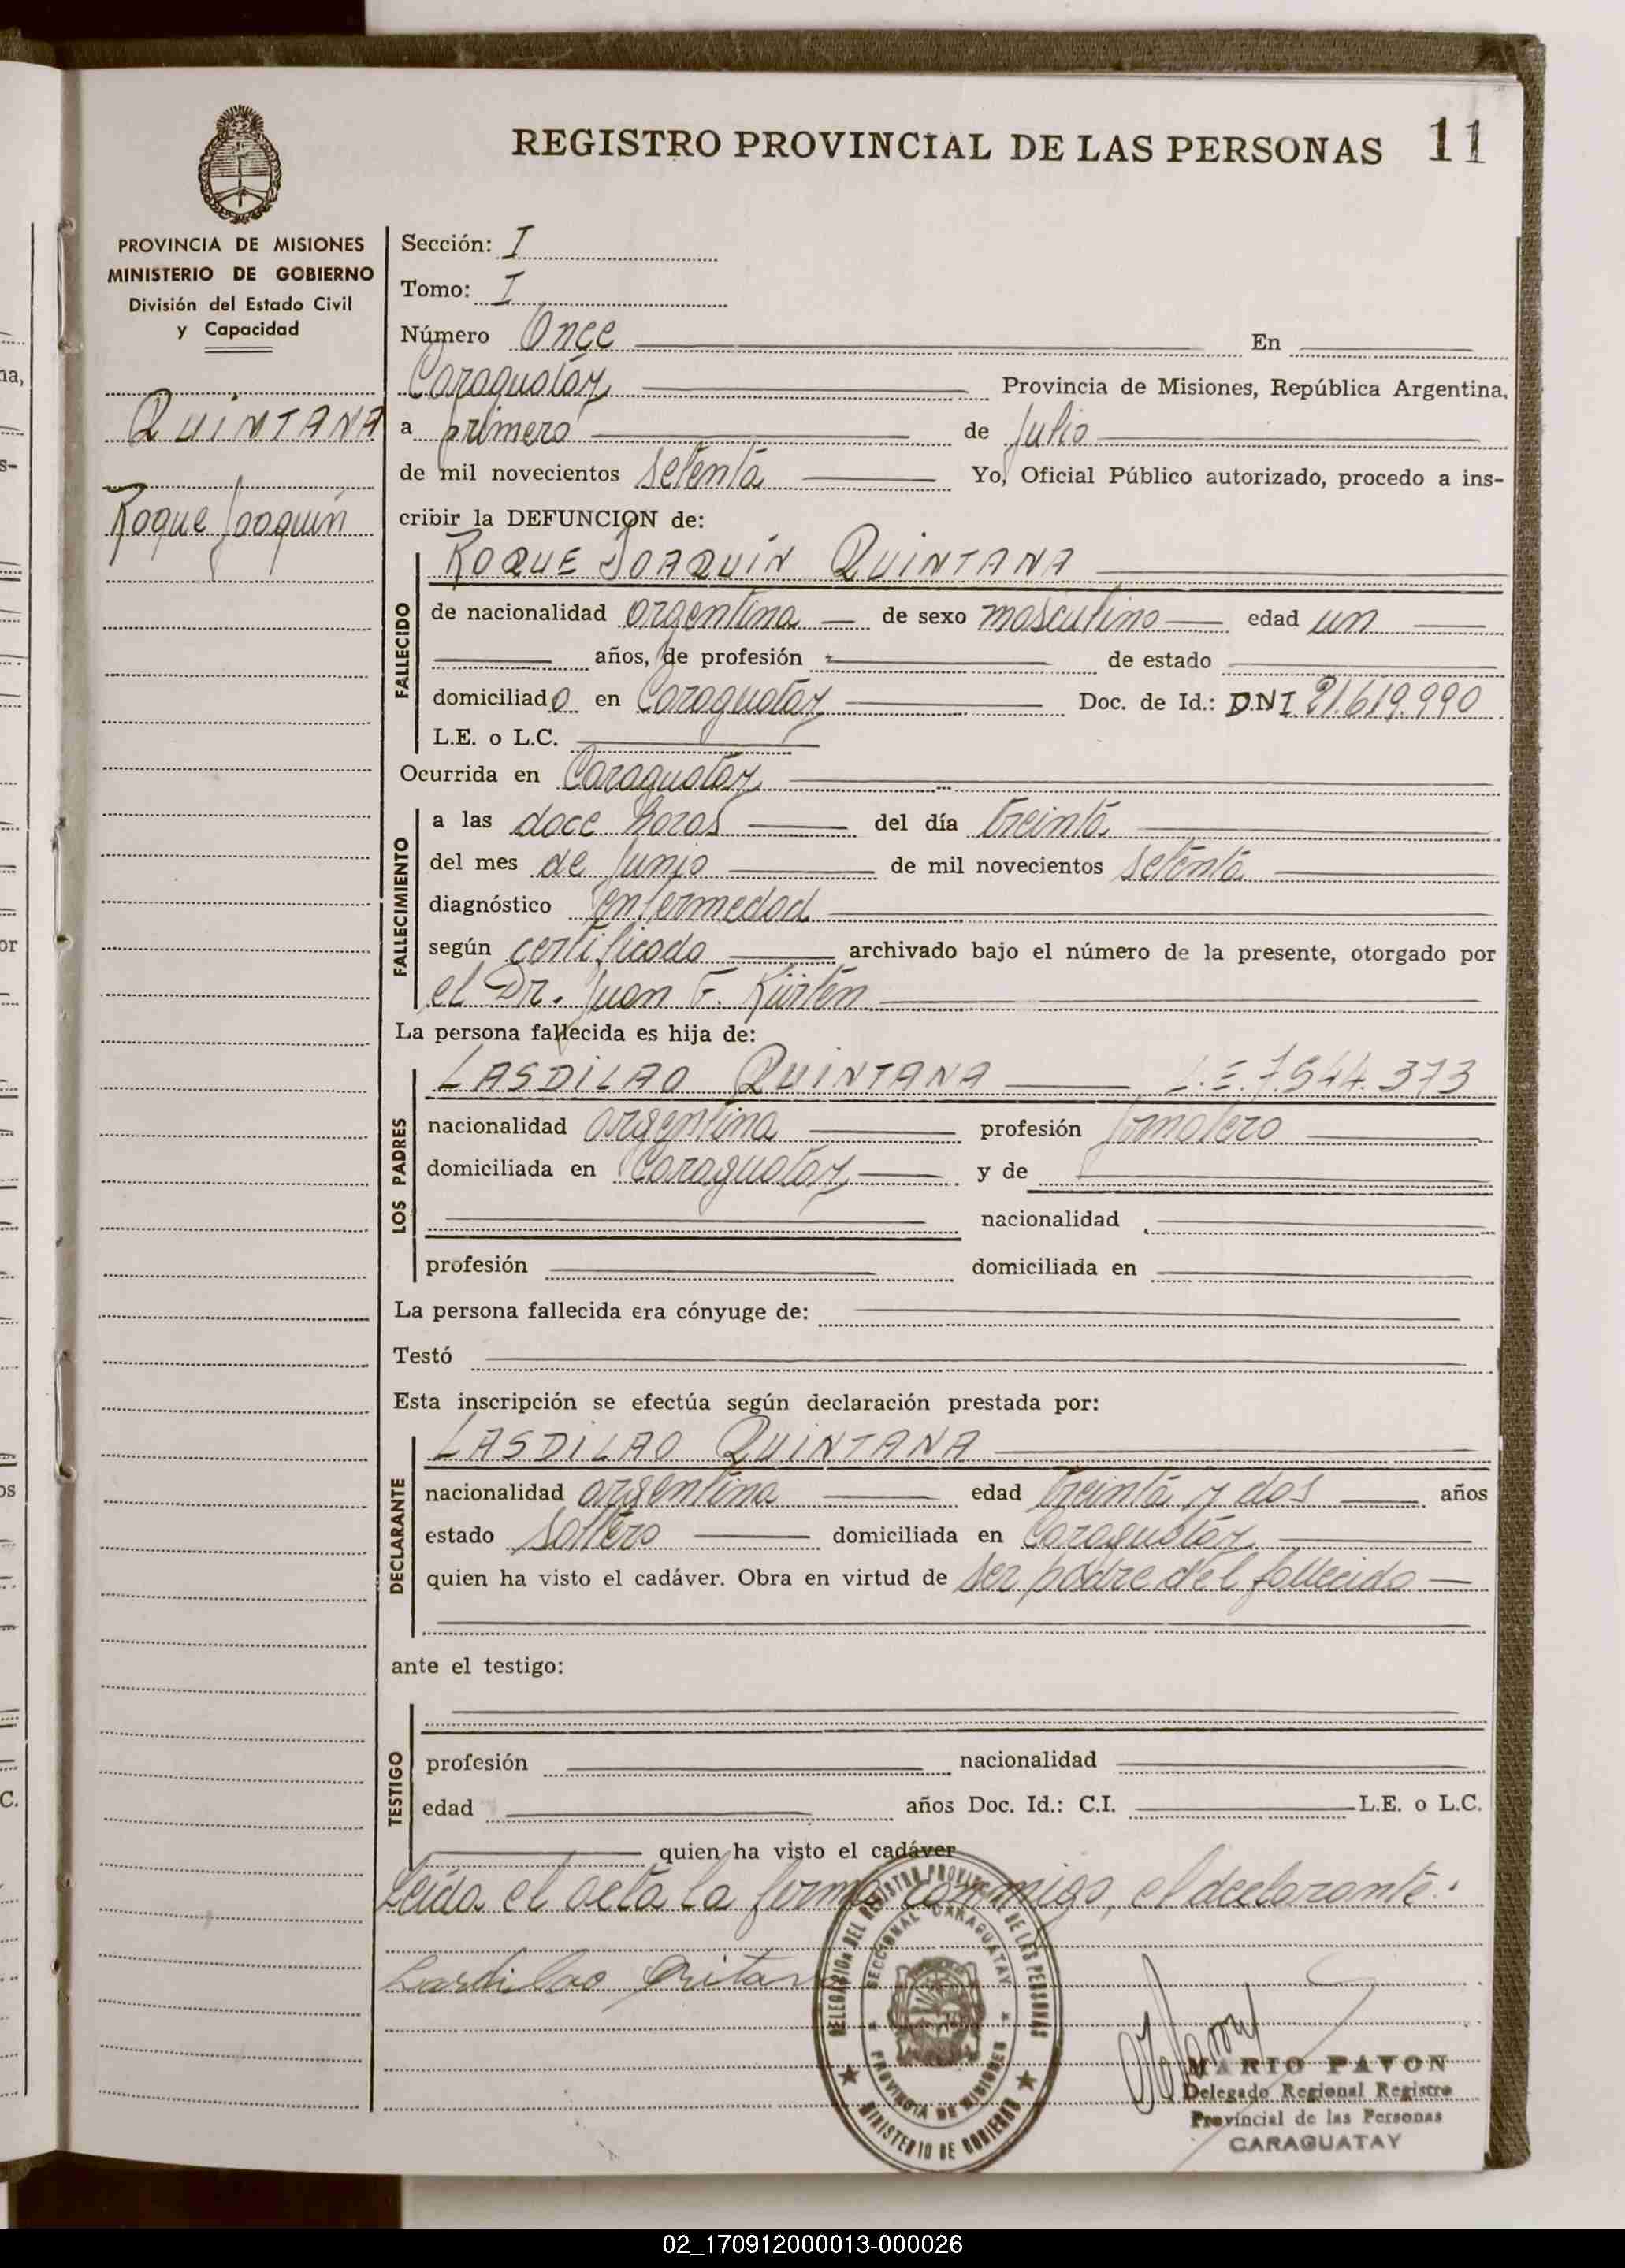 REGISTRO PROVINCIAL DE LAS PERSONAS 11
PROVINCIA DE MISIONES
MINISTERIO DE GOBIERNO
División del Estado Civil
y Capacidad
QUINTANA
Roque Joaquín
Sección: I
Tomo: I
Número Once En
Caraguatay Provincia de Misiones, República Argentina,
a primero de Julio
de mil novecientos setenta Yo, Oficial Público autorizado, procedo a ins-
cribir la DEFUNCION de:
FALLECIDO
ROQUE JOAQUÍN QUINTANA
de nacionalidad argentina de sexo masculino edad un
años, de profesión de estado
domiciliado en Caraguatay Doc. de Id.: D.N.I. 21.619.990
L.E. o L.C.
Ocurrida en Caraguatay
FALLECIMIENTO
a las doce horas del día treinta
del mes de Junio de mil novecientos setenta
diagnóstico enfermedad
según certificado archivado bajo el número de la presente, otorgado por
el Dr. Juan F. Kürten
La persona fallecida es hija de:
LOS PADRES
LASDILAO QUINTANA L.E. 7.544.373
nacionalidad argentina profesión Jornalero
domiciliada en Caraguatay y de
nacionalidad
profesión domiciliada en
La persona fallecida era cónyuge de:
Testó
Esta inscripción se efectúa según declaración prestada por:
DECLARANTE
LASDILAO QUINTANA
nacionalidad argentina edad treinta y dos años
estado soltero domiciliada en Caraguatay
quien ha visto el cadáver. Obra en virtud de ser padre del fallecido
ante el testigo:
TESTIGO
profesión nacionalidad
edad años Doc. Id.: C.I. L.E. o L.C.
quien ha visto el cadáver
Leída el acta la firma conmigo, el declarante.
DELEGACION DEL REGISTRO PROVINCIAL DE LAS PERSONAS
SECCIONAL CARAGUATAY
PROVINCIA DE MISIONES
MINISTERIO DE GOBIERNO
MARIO PAVON
Delegado Regional Registro
Provincial de las Personas
CARAGUATAY
02_170912000013-000026